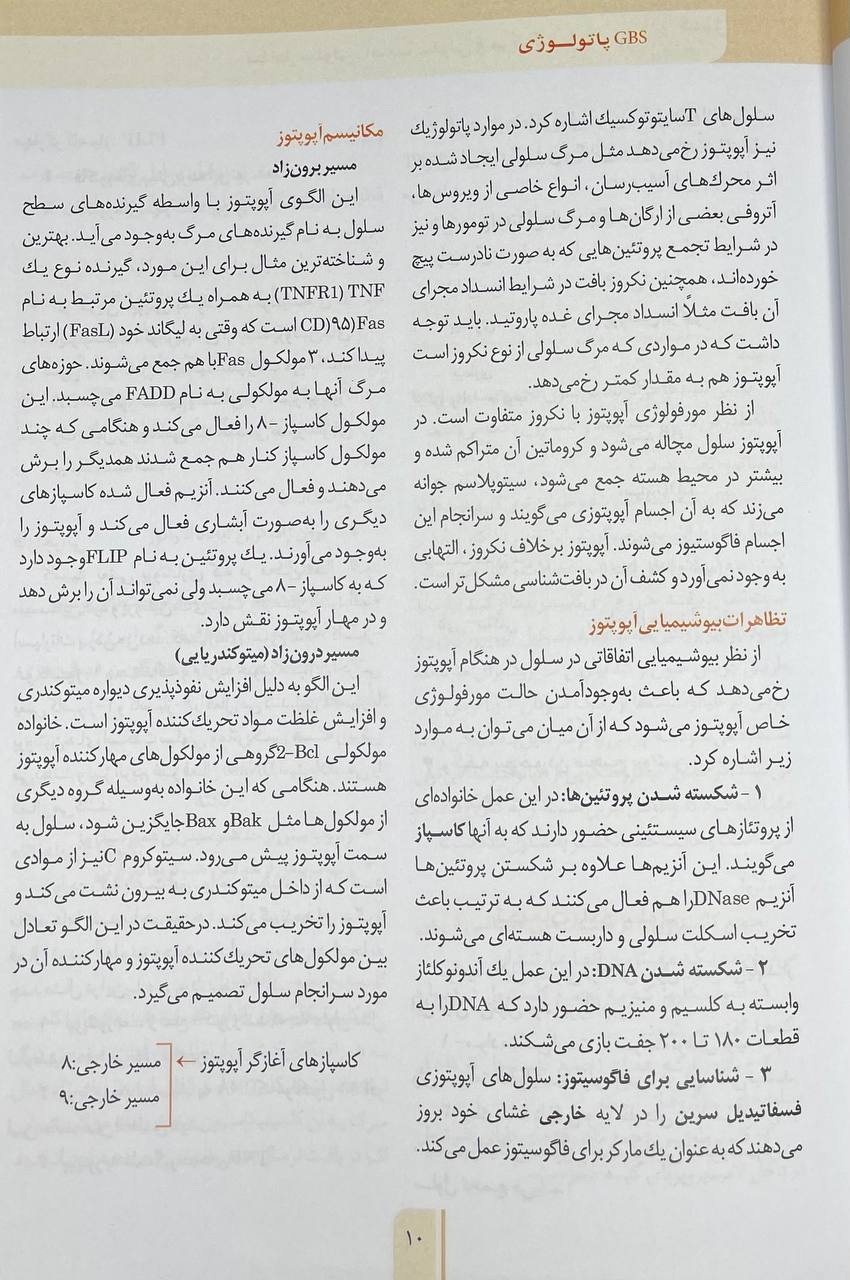 GBS پاتولوژی
سلول‌های Tسایتوتوکسیک اشاره کرد. در موارد پاتولوژیک
نیز آپوپتوز رخ می‌دهد مثل مرگ سلولی ایجاد شده بر
اثر محرک‌های آسیب‌رسان، انواع خاصی از ویروس‌ها،
آتروفی بعضی از ارگان‌ها و مرگ سلولی در تومورها و نیز
در شرایط تجمع پروتئین‌هایی که به صورت نادرست پیچ
خورده‌اند، همچنین نکروز بافت در شرایط انسداد مجرای
آن بافت مثلاً انسداد مجرای غده پاروتید. باید توجه
داشت که در مواردی که مرگ سلولی از نوع نکروز است
آپوپتوز هم به مقدار کمتر رخ می‌دهد.
از نظر مورفولوژی آپوپتوز با نکروز متفاوت است. در
آپوپتوز سلول مچاله می‌شود و کروماتین آن متراکم شده و
بیشتر در محیط هسته جمع می‌شود، سیتوپلاسم جوانه
می‌زند که به آن اجسام آپوپتوزی می‌گویند و سرانجام این
اجسام فاگوستیوز می‌شوند. آپوپتوز برخلاف نکروز، التهابی
به وجود نمی‌آورد و کشف آن در بافت‌شناسی مشکل‌تر است.
تظاهرات بیوشیمیایی آپوپتوز
از نظر بیوشیمیایی اتفاقاتی در سلول در هنگام آپوپتوز
رخ می‌دهد که باعث به‌وجودآمدن حالت مورفولوژی
خاص آپوپتوز می‌شود که از آن میان می‌توان به موارد
زیر اشاره کرد.
۱ - شکسته شدن پروتئین‌ها: در این عمل خانواده‌ای
از پروتئازهای سیستئینی حضور دارند که به آنها کاسپاز
می‌گویند. این آنزیم‌ها علاوه بر شکستن پروتئین‌ها
آنزیم DNaseرا هم فعال می‌کنند که به ترتیب باعث
تخریب اسکلت سلولی و داربست هسته‌ای می‌شوند.
۲ - شکسته شدن DNA: در این عمل یک آندونوکلئاز
وابسته به کلسیم و منیزیم حضور دارد که DNAرا به
قطعات ۱۸۰ تا ۲۰۰ جفت بازی می‌شکند.
۳ - شناسایی برای فاگوسیتوز: سلول‌های آپوپتوزی
فسفاتیدیل سرین را در لایه خارجی غشای خود بروز
می‌دهند که به عنوان یک مارکر برای فاگوسیتوز عمل می‌کند.
مکانیسم آپوپتوز
مسیر برون‌زاد
این الگوی آپوپتوز با واسطه گیرنده‌های سطح
سلول به نام گیرنده‌های مرگ به‌وجود می‌آید. بهترین
و شناخته‌ترین مثال برای این مورد، گیرنده نوع یک
TNF (TNFR1) به همراه یک پروتئین مرتبط به نام
Fas(CD(۹۵ است که وقتی به لیگاند خود (FasL) ارتباط
پیدا کند، ۳ مولکول Fasبا هم جمع می‌شوند. حوزه‌های
مرگ آنها به مولکولی به نام FADD می‌چسبد. این
مولکول کاسپاز -۸ را فعال می‌کند و هنگامی که چند
مولکول کاسپاز کنار هم جمع شدند همدیگر را برش
می‌دهند و فعال می‌کنند. آنزیم فعال شده کاسپازهای
دیگری را به‌صورت آبشاری فعال می‌کند و آپوپتوز را
به‌وجود می‌آورند. یک پروتئین به نام FLIPوجود دارد
که به کاسپاز -۸ می‌چسبد ولی نمی‌تواند آن را برش دهد
و در مهار آپوپتوز نقش دارد.
مسیر درون‌زاد (میتوکندریایی)
این الگو به دلیل افزایش نفوذپذیری دیواره میتوکندری
و افزایش غلظت مواد تحریک‌کننده آپوپتوز است. خانواده
مولکولی Bcl-2گروهی از مولکول‌های مهارکننده آپوپتوز
هستند. هنگامی که این خانواده به‌وسیله گروه دیگری
از مولکول‌ها مثل Bakو Baxجایگزین شود، سلول به
سمت آپوپتوز پیش می‌رود. سیتوکروم Cنیز از موادی
است که از داخل میتوکندری به بیرون نشت می‌کند و
آپوپتوز را تخریب می‌کند. درحقیقت در این الگو تعادل
بین مولکول‌های تحریک‌کننده آپوپتوز و مهارکننده آن در
مورد سرانجام سلول تصمیم می‌گیرد.
کاسپازهای آغازگر آپوپتوز ← مسیر خارجی:۸
مسیر خارجی:۹
۱۰